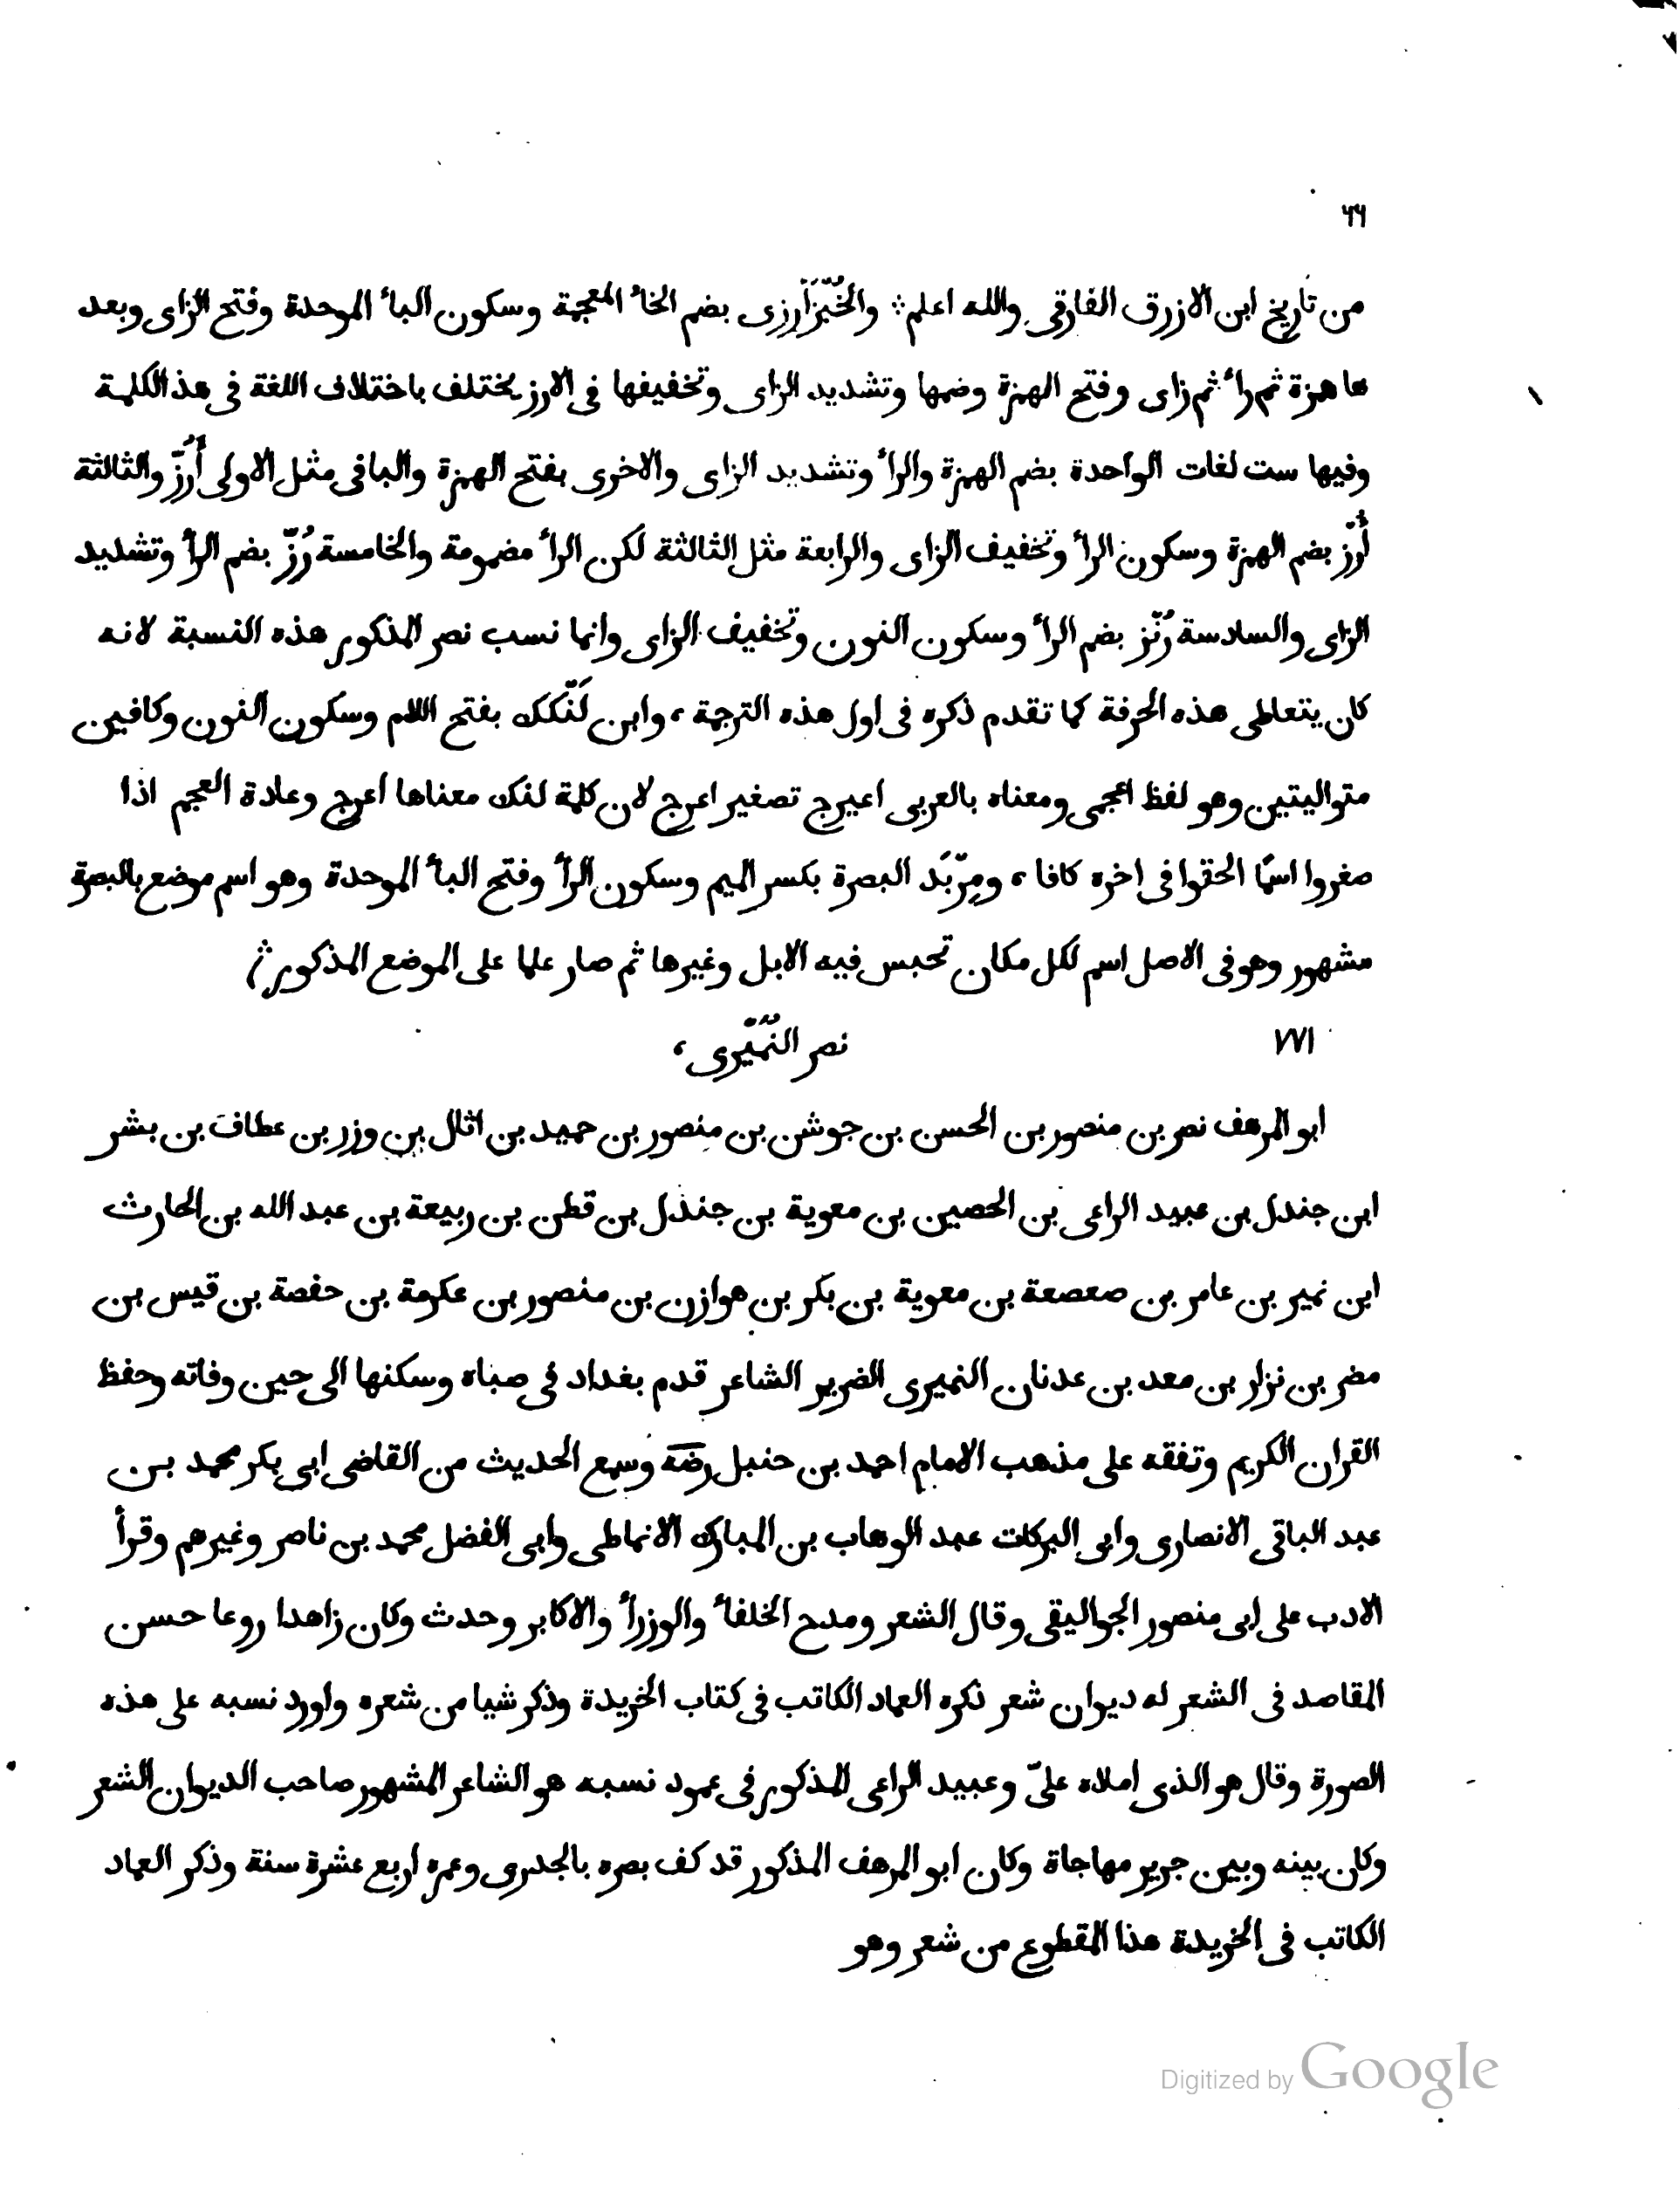 ٦٦
من تاريخ ابن الازرق الفارقى والله اعلم ؞ والخُبْزَأَرزى بضم الخاء المعجمة وسكون الباء الموحدة وفتح الزاى وبعد
ها همزة ثم راء ثم زاى وفتح الهمزة وضمها وتشديد الزاى وتخفيفها فى الارز يختلف باختلاف اللغة فى هذ الكلمة
وفيها ست لغات الواحدة بضم الهمزة والراء وتشديد الزاى والاخرى بفتح الهمزة والباقى مثل الاولى أُرُزّ والثالثة
أُرْز بضم الهمزة وسكون الراء وتخفيف الزاى والرابعة مثل الثالثة لكن الراء مضمومة والخامسة رُزّ بضم الراء وتشديد
الزاى والسادسة رُنْز بضم الراء وسكون النون وتخفيف الزاى وانما نسب نصر المذكور هذه النسبة لانه
كان يتعاطى هذه الحرفة كما تقدم ذكره فى اول هذه الترجمة ، وابن لَنْكَك بفتح اللام وسكون النون وكافين
متواليتين وهو لفظ اعجمى ومعناه بالعربى اعيرج تصغير اعرج لان كلمة لنك معناها اعرج وعادة العجم اذا
صغروا اسمًا الحقوا فى اخره كافا ، ومِرْبَد البصرة بكسر الميم وسكون الراء وفتح الباء الموحدة وهو اسم موضع بالبصرة
مشهور وهو فى الاصل اسم لكل مكان تحبس فيه الابل وغيرها ثم صار علما على الموضع المذكور ؞
٧٧١ نصر النُمَيْرى ،
ابو المرهف نصر بن منصور بن الحسن بن جوشن بن منصور بن حميد بن اثال بن وزر بن عطاف بن بشر
ابن جندل بن عبيد الراعى بن الحصين بن معوية بن جندل بن قطن بن ربيعة بن عبد الله بن الحارث
ابن نمير بن عامر بن صعصعة بن معوية بن بكر بن هوازن بن منصور بن عكرمة بن حفصة بن قيس بن
مضر بن نزار بن معد بن عدنان النميرى الضرير الشاعر قدم بغداد فى صباه وسكنها الى حين وفاته وحفظ
القران الكريم وتفقه على مذهب الامام احمد بن حنبل رضه وسمع الحديث من القاضى ابى بكر محمد بن
عبد الباقى الانصارى وابى البركات عبد الوهاب بن المبارك الانماطى وابى الفضل محمد بن ناصر وغيرهم وقرأ
الادب على ابى منصور الجواليقى وقال الشعر ومدح الخلفاء والوزراء والاكابر وحدث وكان زاهدا روعا حسن
المقاصد فى الشعر له ديوان شعر ذكره العماد الكاتب فى كتاب الخريدة وذكر شيا من شعره واورد نسبه على هذه
الصورة وقال هو الذى املاه علىّ وعبيد الراعى المذكور فى عمود نسبه هو الشاعر المشهور صاحب الديوان الشعر
وكان بينه وبين جرير مهاجاة وكان ابو المرهف المذكور قد كف بصره بالجدرى وعمره اربع عشرة سنة وذكر العماد
الكاتب فى الخريدة هذا المقطوع من شعر وهو
Digitized by Google